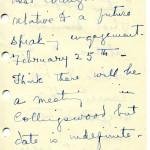 relative to a future
speaking engagement.
February 25th -
Think there will be
a meeting in
Collingswood but
date is indefinite.